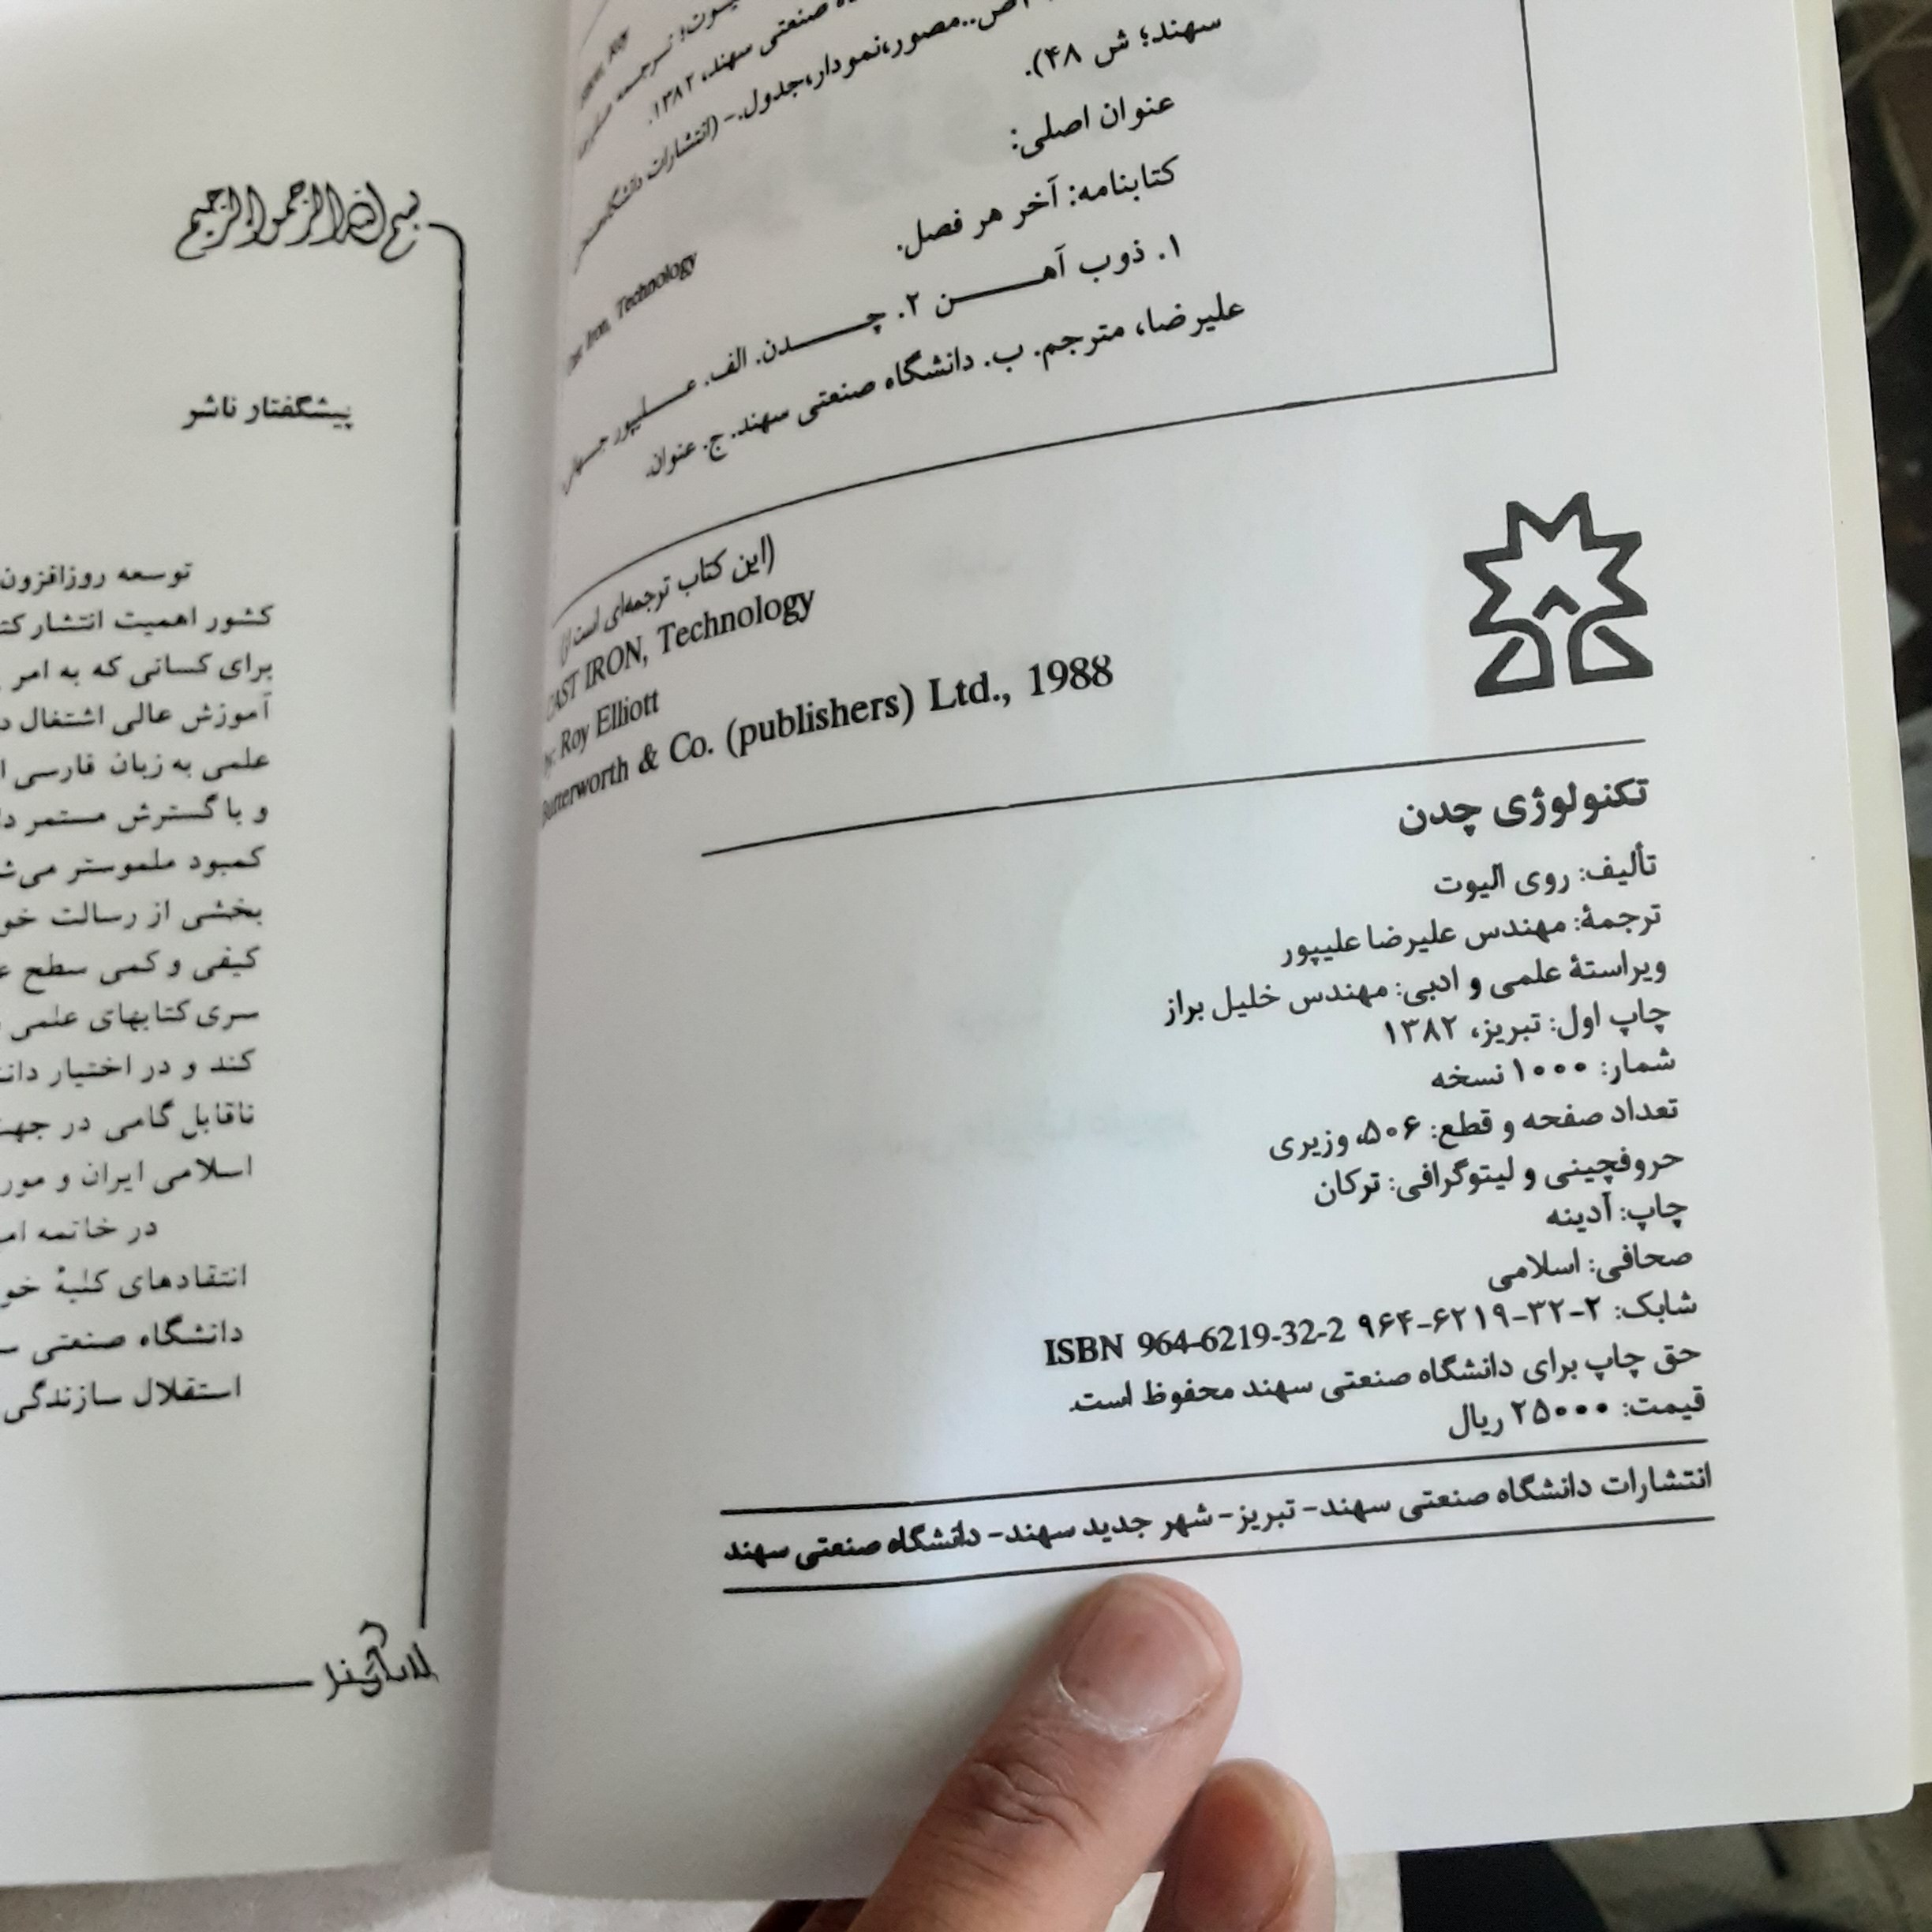 صنعتی سهند، ۱۳۸۲.
ص..مصور،نمودار،جدول.- (انتشارات دانشگاه
سهند؛ ش ۴۸).
عنوان اصلی:
Iron, Technology
کتابنامه: آخر هر فصل.
۱. ذوب آهـــن ۲. چـــدن. الف. عـــلیپور
علیرضا، مترجم. ب. دانشگاه صنعتی سهند. ج. عنوان.
(این کتاب ترجمه‌ای است از)
CAST IRON, Technology
by: Roy Elliott
Butterworth & Co. (publishers) Ltd., 1988
تکنولوژی چدن
تألیف: روی الیوت
ترجمهٔ: مهندس علیرضا علیپور
ویراستهٔ علمی و ادبی: مهندس خلیل براز
چاپ اول: تبریز، ۱۳۸۲
شمار: ۱۰۰۰ نسخه
تعداد صفحه و قطع: ۵۰۶، وزیری
حروفچینی و لیتوگرافی: ترکان
چاپ: آدینه
صحافی: اسلامی
شابک: ۲-۳۲-۶۲۱۹-۹۶۴ ISBN 964-6219-32-2
حق چاپ برای دانشگاه صنعتی سهند محفوظ است.
قیمت: ۲۵۰۰۰ ریال
انتشارات دانشگاه صنعتی سهند- تبریز- شهر جدید سهند- دانشگاه صنعتی سهند
بسم الله الرحمن الرحیم
پیشگفتار ناشر
توسعه روزافزون
کشور اهمیت انتشار
برای کسانی که به امر
آموزش عالی اشتغال
علمی به زبان فارسی
و با گسترش مستمر
کمبود ملموستر
بخشی از رسالت
کیفی و کمی سطح
سری کتابهای علمی
کند و در اختیار
ناقابل گامی در
اسلامی ایران و
در خاتمه
انتقادهای کلیهٔ
دانشگاه صنعتی
استقلال سازندگی